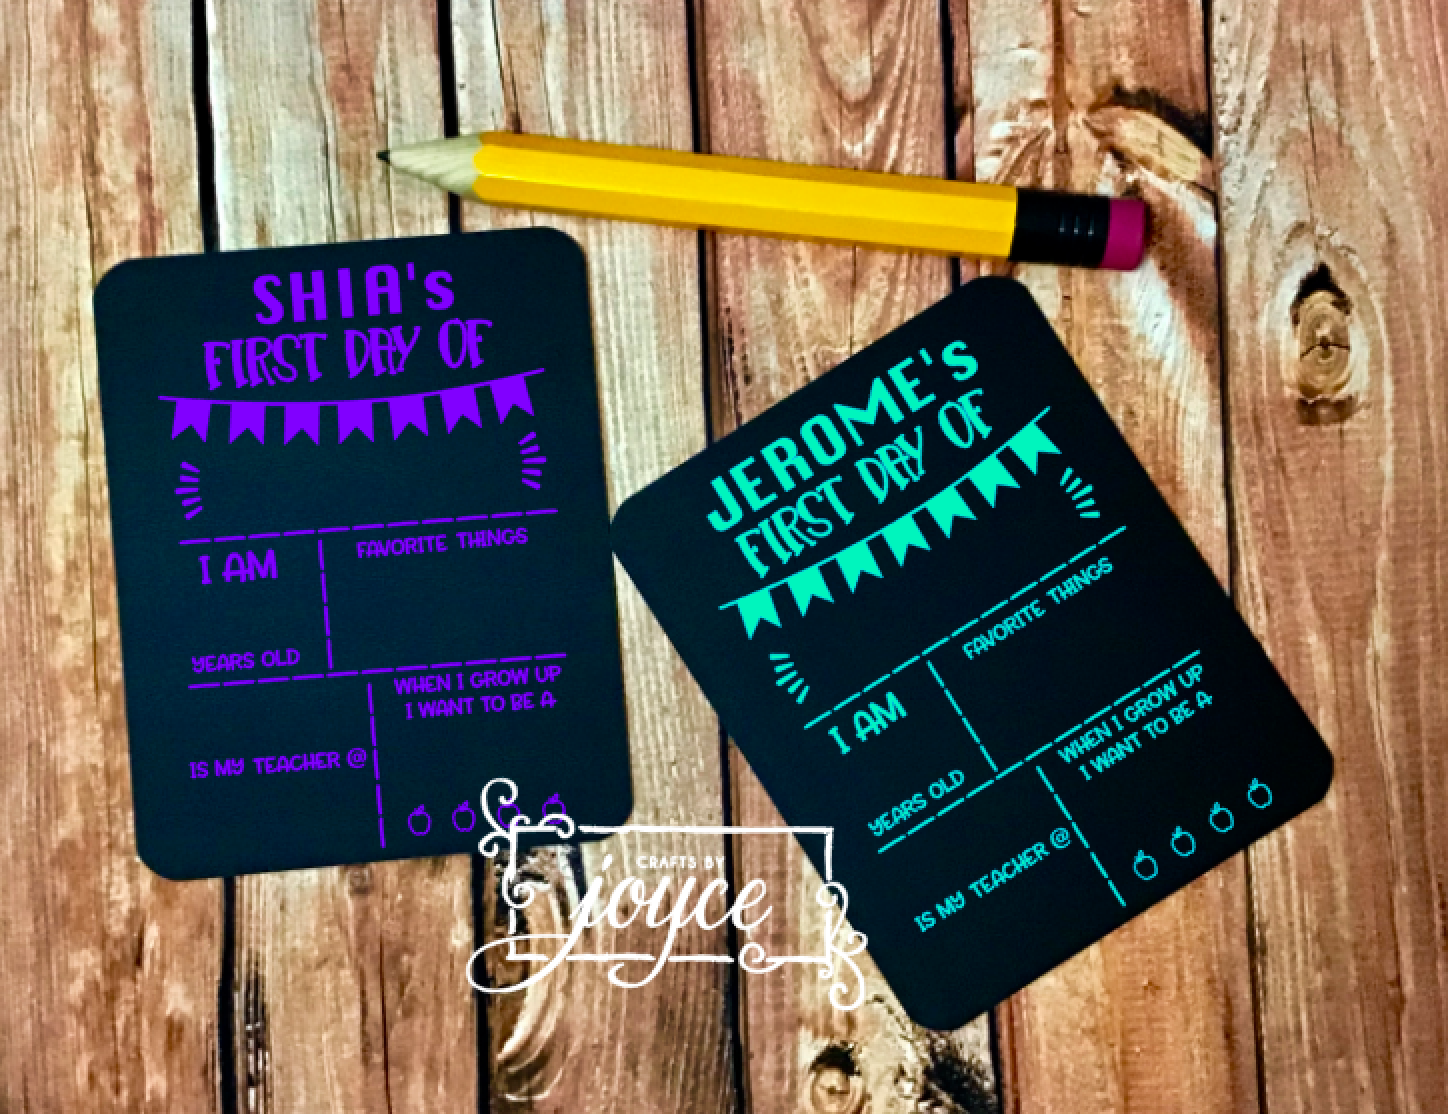 SHIA's
FIRST DAY OF
I AM
FAVORITE THINGS
YEARS OLD
WHEN I GROW UP
I WANT TO BE A
IS MY TEACHER @
JEROME's
FIRST DAY OF
FAVORITE THINGS
I AM
YEARS OLD
WHEN I GROW UP
I WANT TO BE A
IS MY TEACHER @
CRAFTS BY
joyce